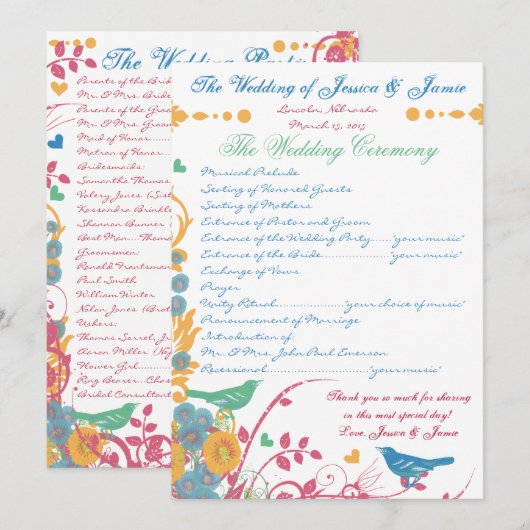 The Wedding
Parents of the Bride
Mr. & Mrs. Bride
Parents of the Groom
Mr. & Mrs. Groom
Maid of Honor
Matron of Honor
Bridesmaids:
Samantha Thomas
Valery Jones (Sis
Kassandra Brinkle
Shannon Bunner
Best Man....Thoma
Groomsmen:
Ronald Frantsman
Paul Smith
William Winter
Nolan Jones (Bro
Ushers:
Thomas Sorrel, Jr.
Aaron Miller (Ne
Flower Girl
Ring Bearer...Chas
Bridal Consultant
The Wedding of Jessica & Jamie
Lincoln, Nebraska
March 15, 2013
The Wedding Ceremony
Musical Prelude
Seating of Honored Guests
Seating of Mothers
Entrance of Pastor and Groom
Entrance of the Wedding Party......"your music"
Entrance of the Bride................"your music"
Exchange of Vows
Prayer
Unity Ritual......................"your choice of music"
Pronouncement of Marriage
Introduction of:
Mr. & Mrs. John Paul Emerson
Recessional........................"your music"
Thank you so much for sharing
in this most special day!
Love, Jessica & Jamie